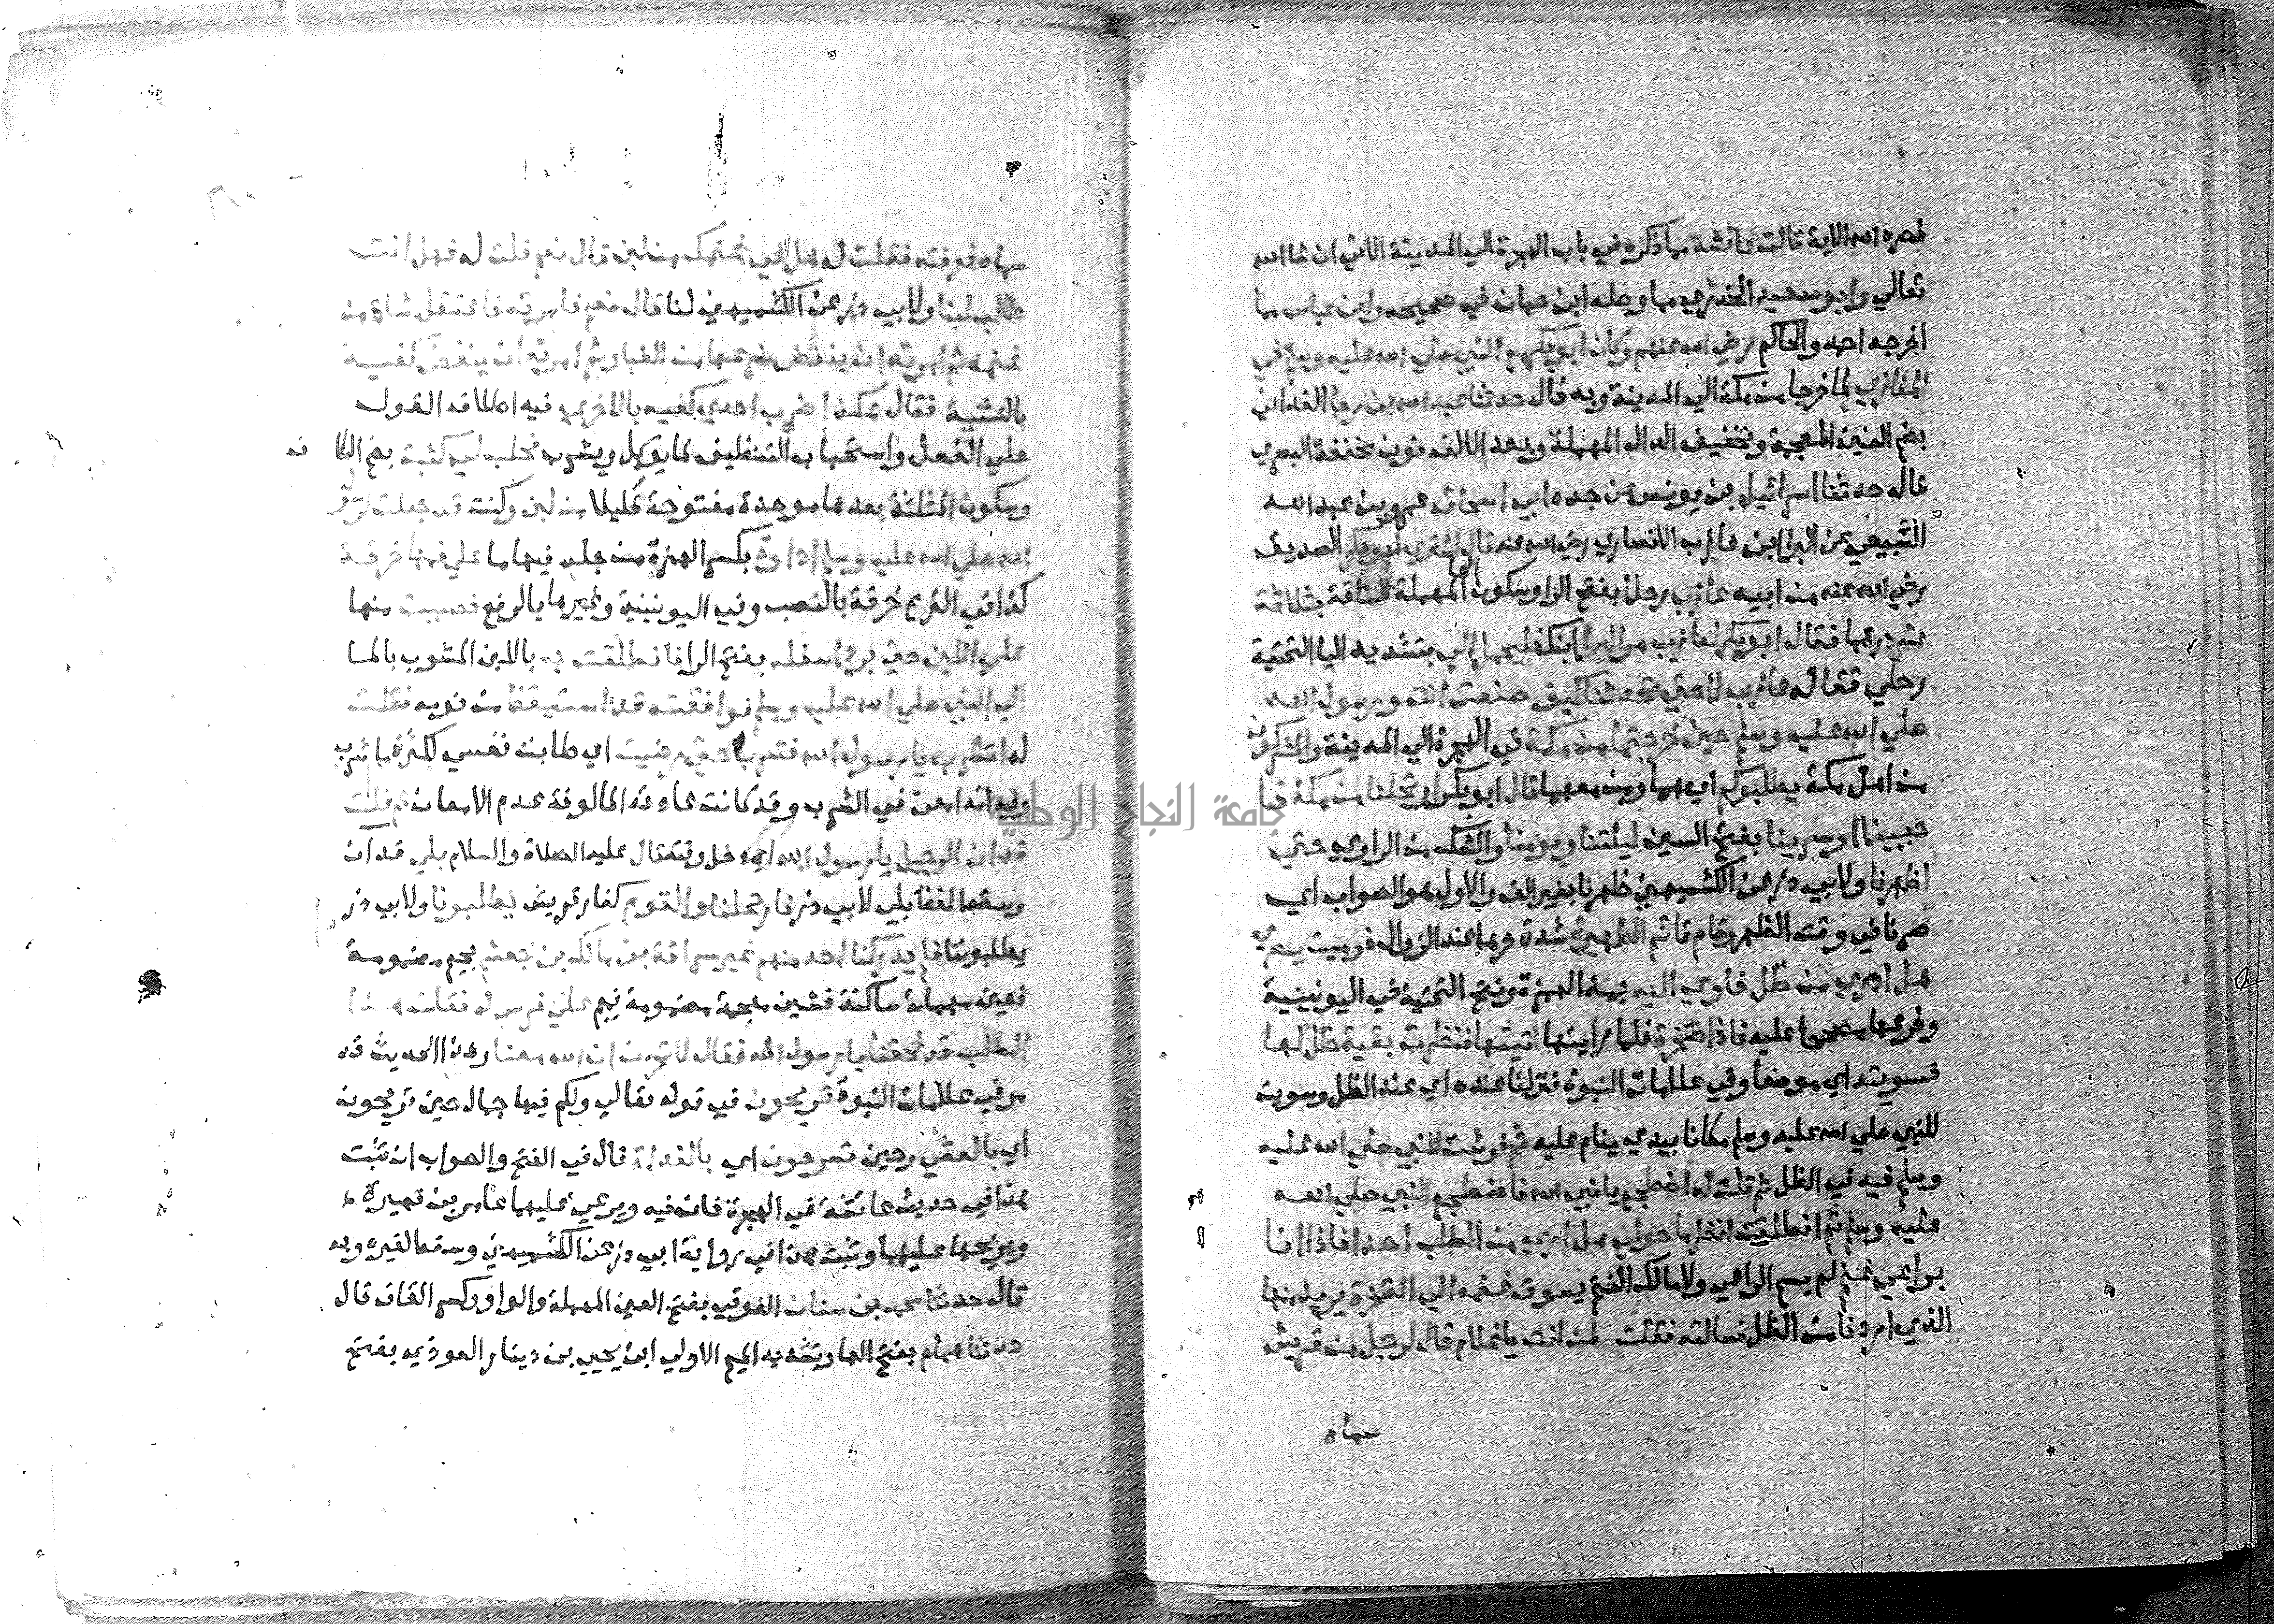 نصره الله الاية قالت عائشة مما ذكره في باب الهجرة الي المدينة الاتي ان شا الله
تعالي وابو سعيد الخدري مما وصله ابن حبان في صحيحه وابن عباس مما
اخرجه احمد والحاكم رضي الله عنهم وكان ابو بكر مع النبي صلي الله عليه وسلم في
الغار لما خرجا من مكة الي المدينة وبه قال حدثنا عبد الله بن رجا الغداني
بضم الغين المعجمة وتخفيف الدال المهملة وبعد الالف نون مخففة البصري
قال حدثنا اسرائيل بن يونس عن جده ابي اسحاق عمرو بن عبد الله
السبيعي عن البرا بن عازب الانصاري رضي الله عنه قال اشتري ابو بكر الصديق
رضي الله عنه من ابيه عازب رحلا بفتح الرا وسكون الحا المهملة للناقة بثلاثة
عشر درهما فقال ابو بكر لعازب مر البرا ابنك فليحمل الي بتشديد اليا التحتية
رحلي فقال له عازب لا حتي تحدثنا كيف صنعت انت ورسول الله
صلي الله عليه وسلم حين خرجتما من مكة في الهجرة الي المدينة والمشركون
من اهل مكة يطلبونكم اي هما ومن معهما قال ابو بكر ارتحلنا من مكة فا
حيينا او سرينا بفتح السين ليلتنا ويومنا والشك من الراوي حتي
اظهرنا ولابي ذر عن الكشميهني ظهرنا بغير الف والاول هو الصواب اي
صرنا في وقت الظهر وقام قائم الظهيرة شدة حرها عند الزوال فرميت ببصري
هل اري من ظل فاوي اليه بمد الهمزة وفتح التحتية في اليونينية
وفرعها مصححا عليه فاذا صخرة فلما رايتها اتيتها فنظرت بقية ظل لها
فسويته اي موضعا وفي علامات النبوة فنزلنا عنده اي عند الظل وسويت
للنبي صلي الله عليه وسلم مكانا بيدي ينام عليه ثم فرشت للنبي صلي الله عليه
وسلم فيه في الظل ثم قلت له اضطجع يا نبي الله فاضطجع النبي صلي الله
عليه وسلم ثم انطلقت انظر ما حولي هل اري من الطلب احدا فاذا انا
براعي غنم لم يسم الراعي ولا مالك الغنم يسوق غنمه الي الصخرة يريد منها
الذي اردنا من الظل فسالته فقلت لمن انت يا غلام قال لرجل من قريش
سماه
سماه فعرفته فقلت له هل في غنمك من لبن قال نعم قلت له فهل انت
حالب لبنا ولابي ذر عن الكشميهني لنا قال نعم فامرته فاعتقل شاة من
غنمه ثم امرته ان ينفض ضرعها من الغبار ثم امرته ان ينفض كفيه
بالتثنية فقال هكذا ضرب احدي كفيه بالاخري فيه اطلاق القول
علي الفعل واستحباب التنظيف لما يوكل ويشرب فحلب لي كثبة بضم الكاف
وسكون المثلثة بعدها موحدة مفتوحة قليلا من لبن وكنت قد جعلت لرسول
الله صلي الله عليه وسلم اداوة بكسر الهمزة من جلد فيها ما علي فمها خرقة
كذا في الفرع خرقة بالنصب وفي اليونينية وغيرها بالرفع فصببت منها
علي اللبن حتي برد اسفله بفتح الرا فانطلقت به باللبن المشوب بالما
الي النبي صلي الله عليه وسلم فوافقته قد استيقظ من نومه فقلت
له اشرب يا رسول الله فشرب حتي رضيت اي طابت نفسي لكثرة ما شرب
وفيه انه امعن في الشرب وقد كانت عادته المالوفة عدم الامعان ثم قلت
قد ان الرحيل يا رسول الله اي دخل وقته قال عليه الصلاة والسلام بلي قد آن
وسقط لفظ بلي لابي ذر فارتحلنا والقوم كفار قريش يطلبونا ولابي ذر
يطلبوننا فلم يدركنا احد منهم غير سراقة بن مالك بن جعشم بجيم مضمومة
فعين مهملة ساكنة فشين معجمة مضمومة فميم علي فرس له فقلت هذا
الطلب قد لحقنا يا رسول الله فقال لا تحزن ان الله معنا وهذا الحديث قد
مر في علامات النبوة تريحون في قوله تعالي ولكم فيها جمال حين تريحون
اي بالعشي وحين تسرحون اي بالغداة قال في الفتح والصواب ان تثبت
هنا في حديث عائشة في الهجرة فان فيه ويرعي عليهما عامر بن فهيرة
ويريحها عليهما وثبت هذا في رواية ابي ذر عن الكشميهني وسقط لغيره وبه
قال حدثنا محمد بن سنان العوقي بفتح العين المهملة والواو وكسر القاف قال
حدثنا همام بفتح الها وتشديد الميم الاولي ابن يحيي بن دينار العوذي بفتح
جامعة النجاح الوطنية